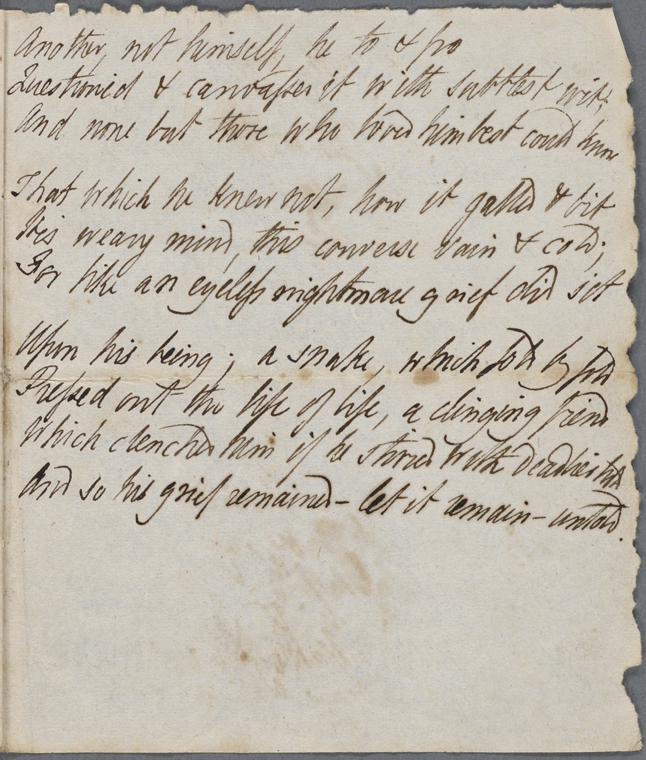 Another, not himself, he to & fro
Questioned & canvassed it with subtlest wit;
And none but those who loved him best could know
That which he knew not, how it galled & bit
His weary mind, this converse vain & cold;
For like an eyeless nightmare grief did sit
Upon his being; a snake, which fold by fold
Pressed out the life of life, a clinging fiend
Which clenched him if he stirred with deadlier hold
And so his grief remained – let it remain – untold.